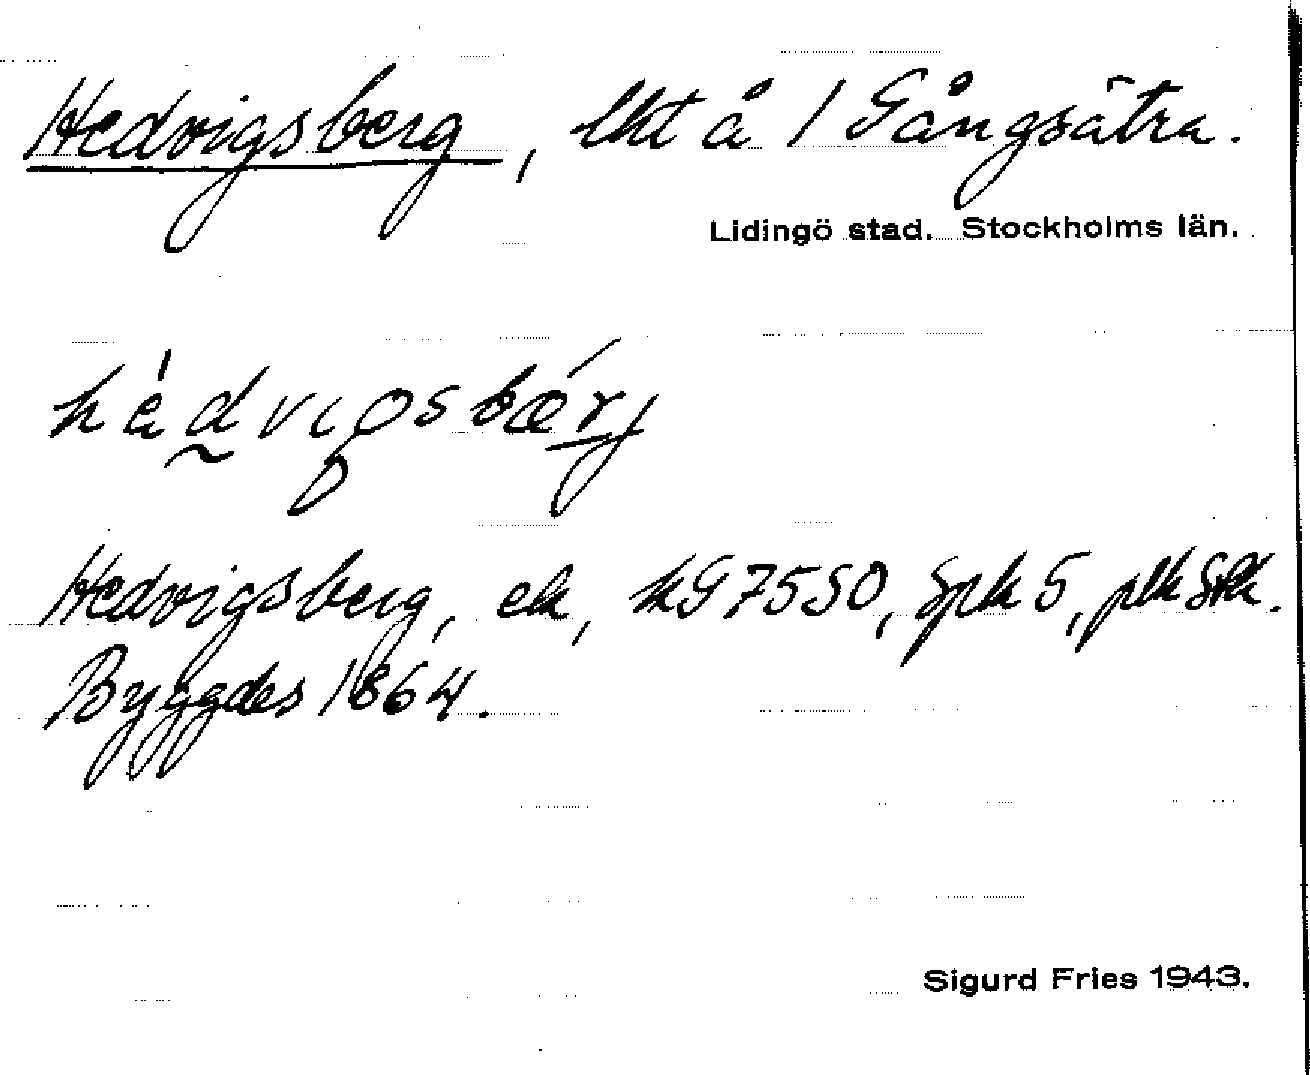 Hedvigsberg, lht å 1 Gångsätra.
Lidingö stad. Stockholms län.
hèdvigsbærj
Hedvigsberg, ek, kG 7550, Spk 5, plk Sthk.
Byggdes 1864.
Sigurd Fries 1943.